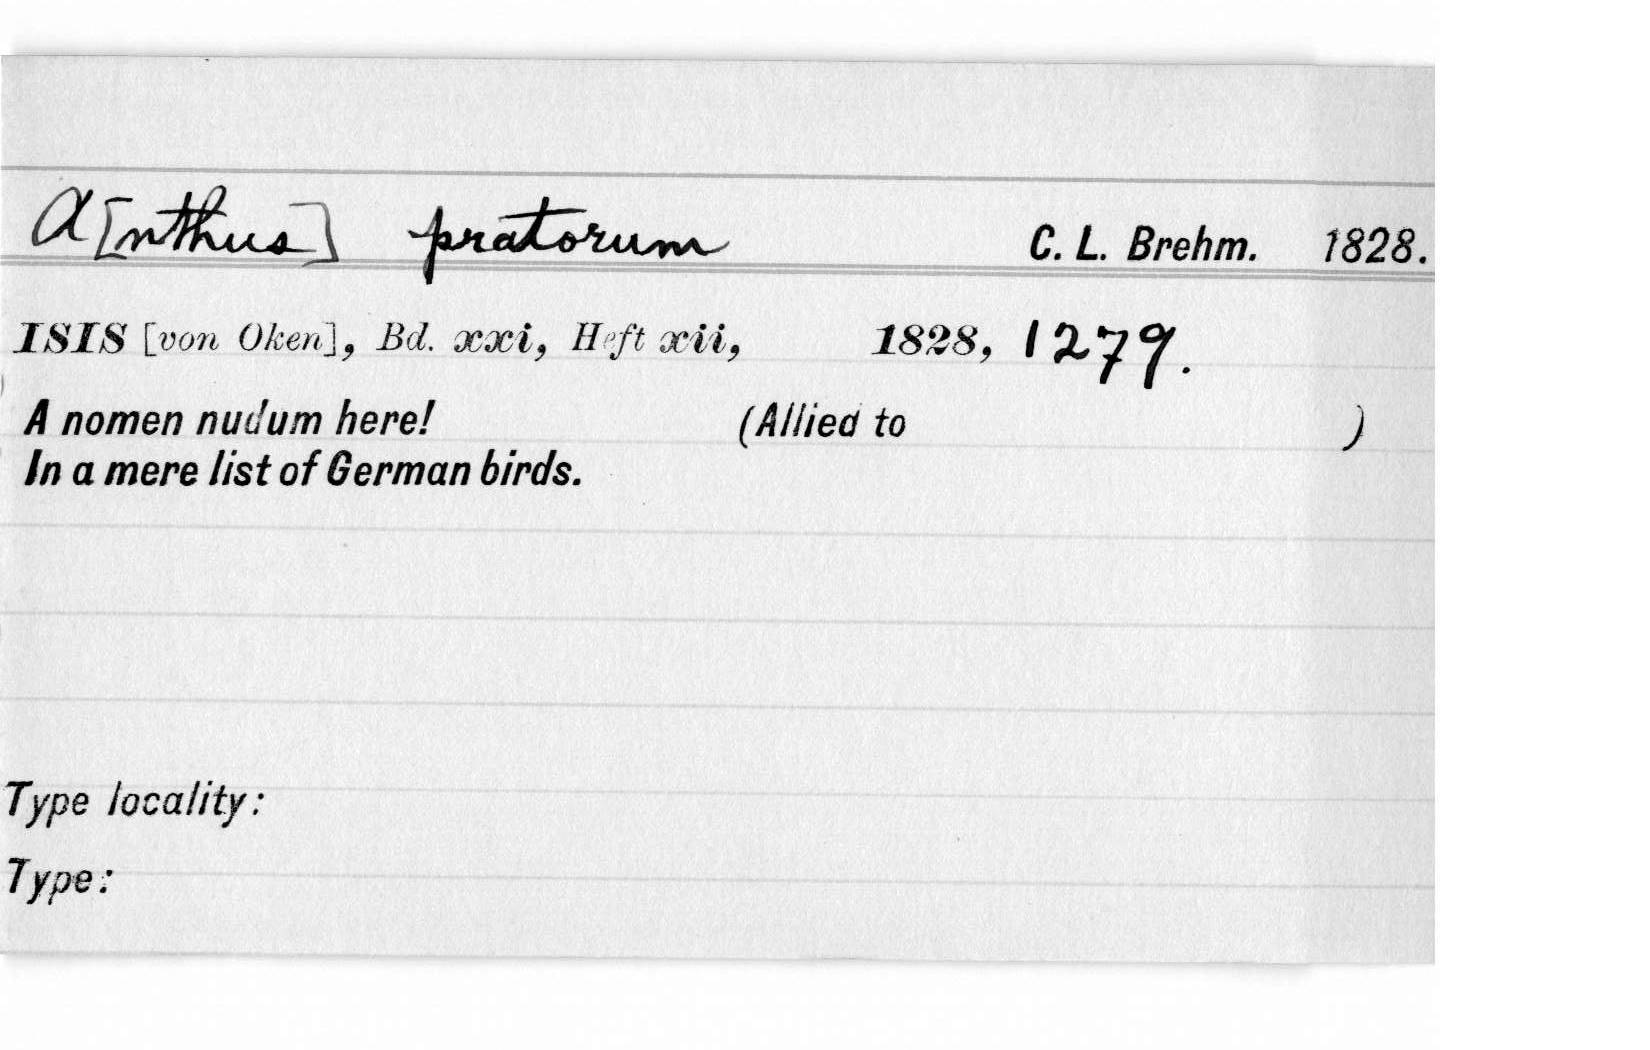 A[nthus] pratorum C. L. Brehm. 1828.
ISIS [von Oken], Bd. xxi, Heft xii, 1828, 1279.
A nomen nudum here! (Allied to )
In a mere list of German birds.
Type locality:
Type: